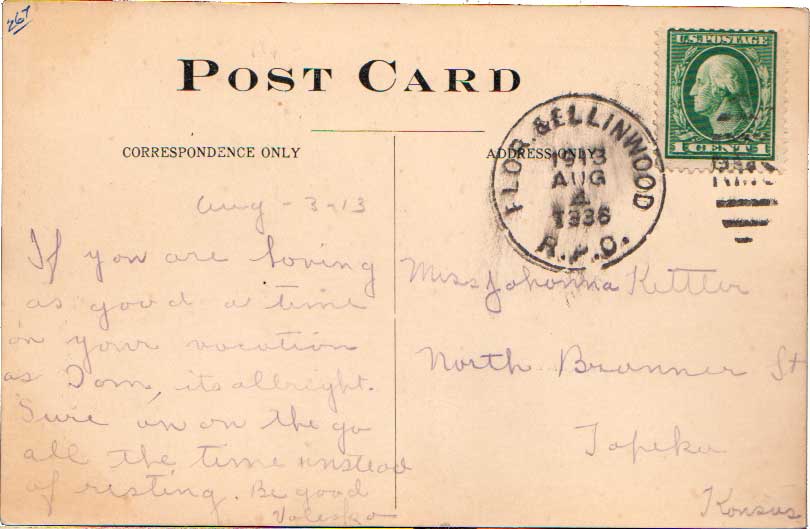 267
POST CARD
U.S. POSTAGE
1 CENT 1
CORRESPONDENCE ONLY
ADDRESS ONLY
FLOR. & ELLINWOOD
1913
AUG
4
1336
R.P.O.
Aug - 3-13
If you are having
as good a time
on your vacation
as I am, its allright.
Sure am on the go
all the time instead
of resting. Be good
Valeska
Miss Johanna Kettler
North Branner St
Topeka
Kansas